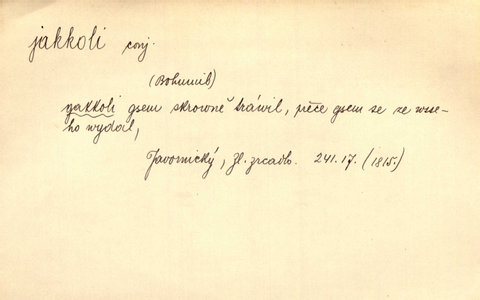 jakkoli conj.
(Bohumil)
gakkoli gsem skrowně tráwil, péče gsem se ze wsse-
ho wydal,
Javornický, Zl. zrcadlo. 241. 17. (1815.)